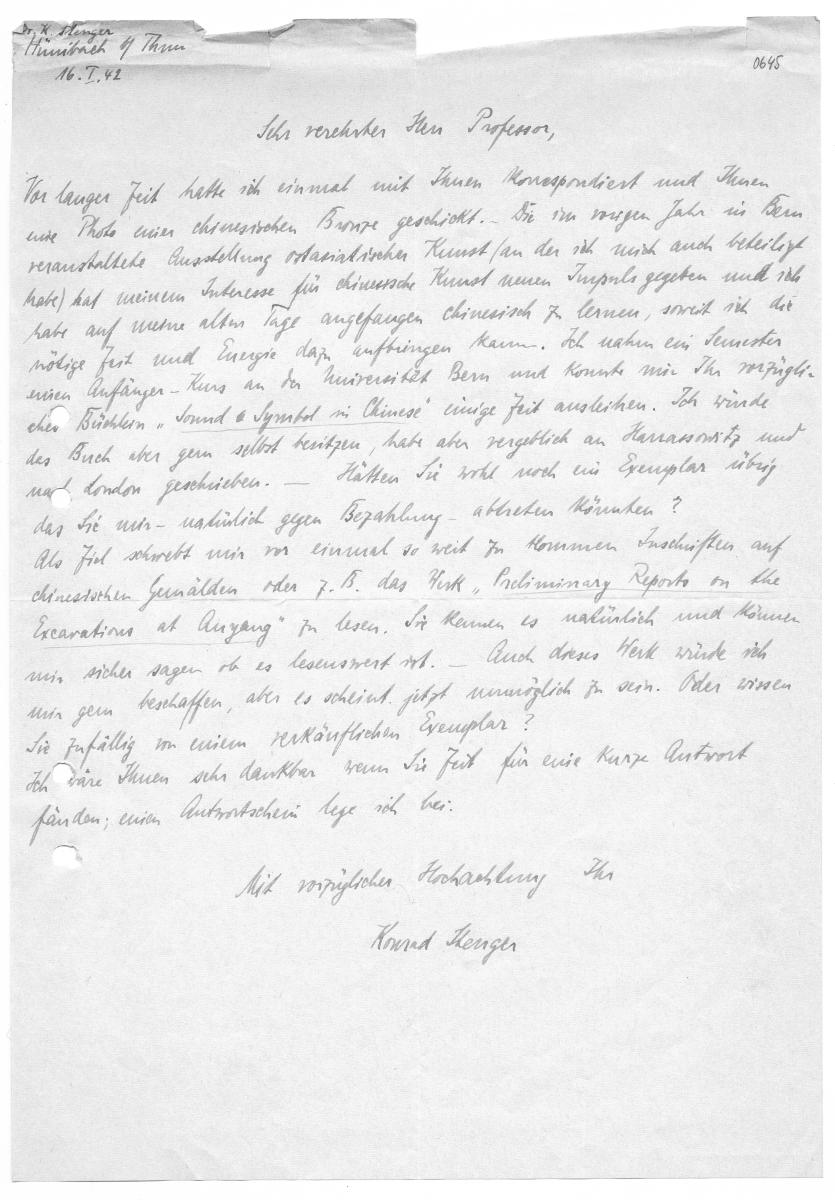 Dr. K. Stenger
Hünibach b/ Thun
16. I. 42
0645
Sehr verehrter Herr Professor,
Vor langer Zeit hatte ich einmal mit Ihnen korrespondiert und Ihnen
eine Photo einer chinesischen Bronze geschickt. – Die im vorigen Jahr in Bern
veranstaltete Ausstellung ostasiatischer Kunst (an der ich mich auch beteiligt
habe) hat meinem Interesse für chinesische Kunst neuen Impuls gegeben und ich
habe auf meine alten Tage angefangen chinesisch zu lernen, soweit ich die
nötige Zeit und Energie dazu aufbringen kann. Ich nahm ein Semester
einen Anfänger-Kurs an der Universität Bern und konnte mir Ihr vorzügli-
ches Büchlein „Sound & Symbol in Chinese" einige Zeit ausleihen. Ich würde
das Buch aber gern selbst besitzen, habe aber vergeblich an Harrassowitz und
nach London geschrieben. — Hätten Sie wohl noch ein Exemplar übrig
das Sie mir – natürlich gegen Bezahlung – abtreten könnten?
Als Ziel schwebt mir vor einmal so weit zu kommen Inschriften auf
chinesischen Gemälden oder z. B. das Werk „Preliminary Reports on the
Excavations at Anyang" zu lesen. Sie kennen es natürlich und können
mir sicher sagen ob es lesenswert ist. — Auch dieses Werk würde ich
mir gern beschaffen, aber es scheint jetzt unmöglich zu sein. Oder wissen
Sie zufällig von einem verkäuflichen Exemplar?
Ich wäre Ihnen sehr dankbar wenn Sie Zeit für eine kurze Antwort
fänden; einen Antwortschein lege ich bei.
Mit vorzüglicher Hochachtung Ihr
Konrad Stenger